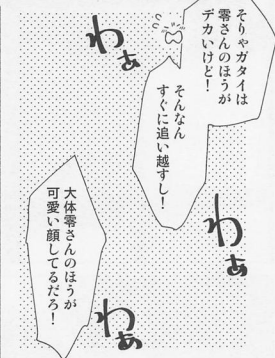 そりゃガタイは
零さんのほうが
デカいけど！
わぁ
そんなん
すぐに追い越すし！
わぁ
大体零さんのほうが
可愛い顔してるだろ！
わぁ